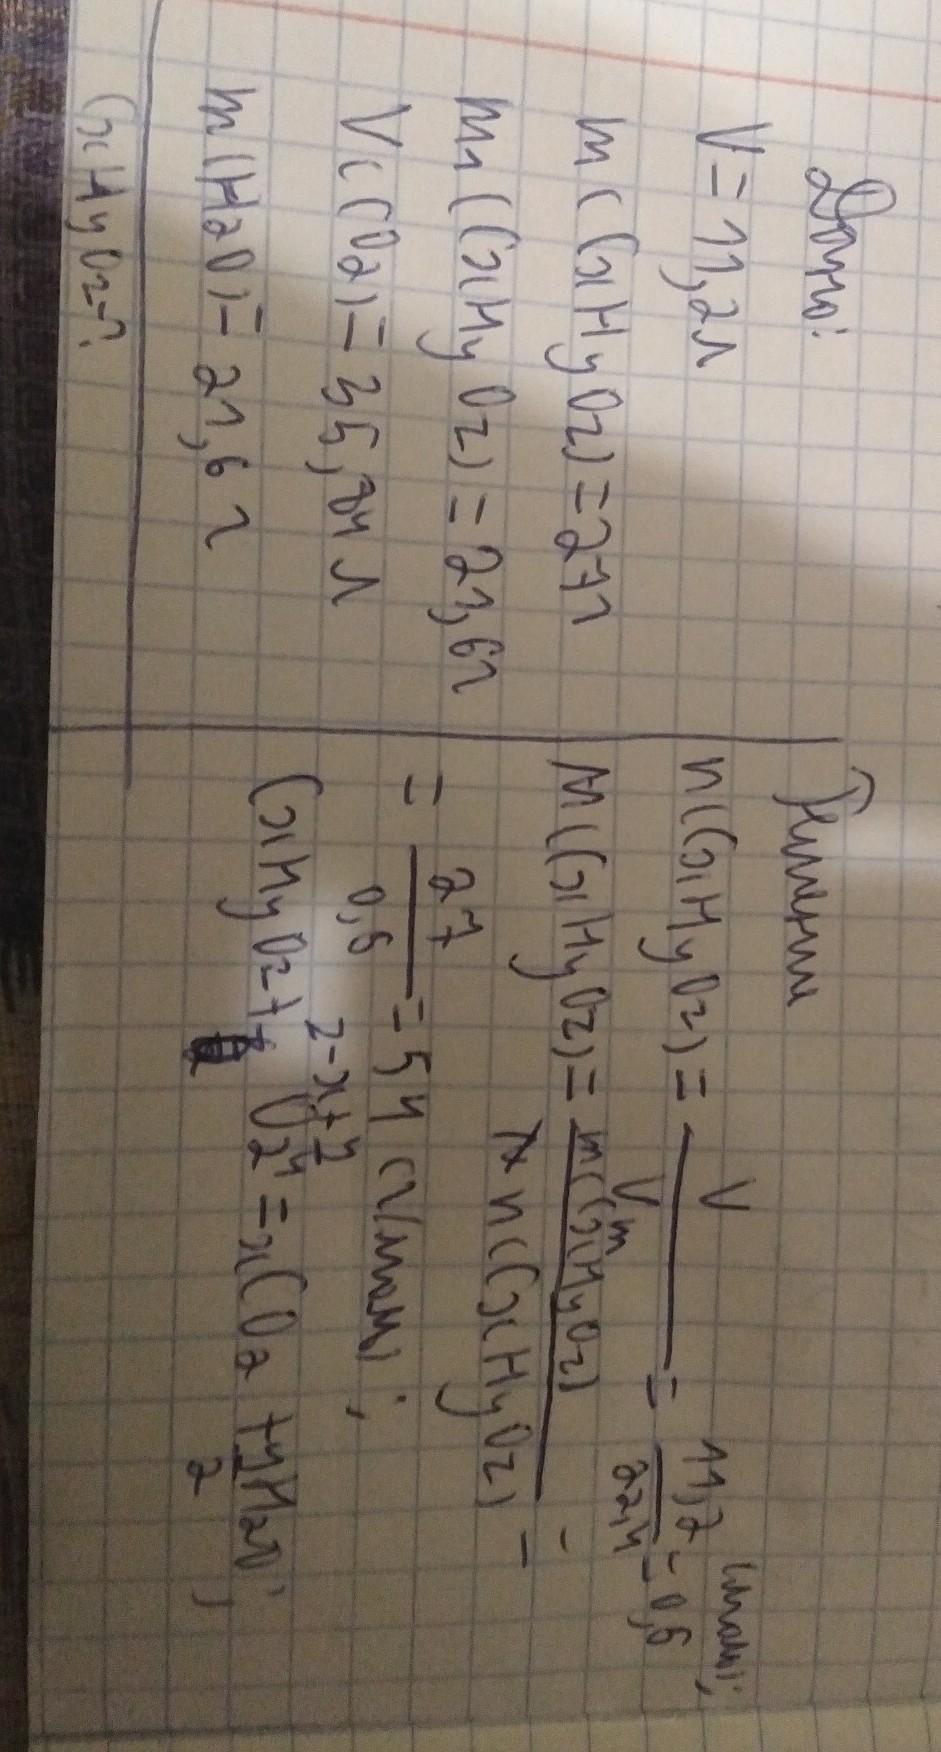 Дано:
V = 11,2 л
m (CxHyOz) = 27 г
m1 (CxHyOz) = 21,6 г
V(CO2) = 35,84 л
m(H2O) = 21,6 г
CxHyOz - ?
n(CxHyOz) = V / Vm = 11,2 / 22,4 = 0,5 (моль);
M (CxHyOz) = m(CxHyOz) / n(CxHyOz) =
= 27 / 0,5 = 54 (г/моль);
CxHyOz + O2 = xCO2 + y/2 H2O;